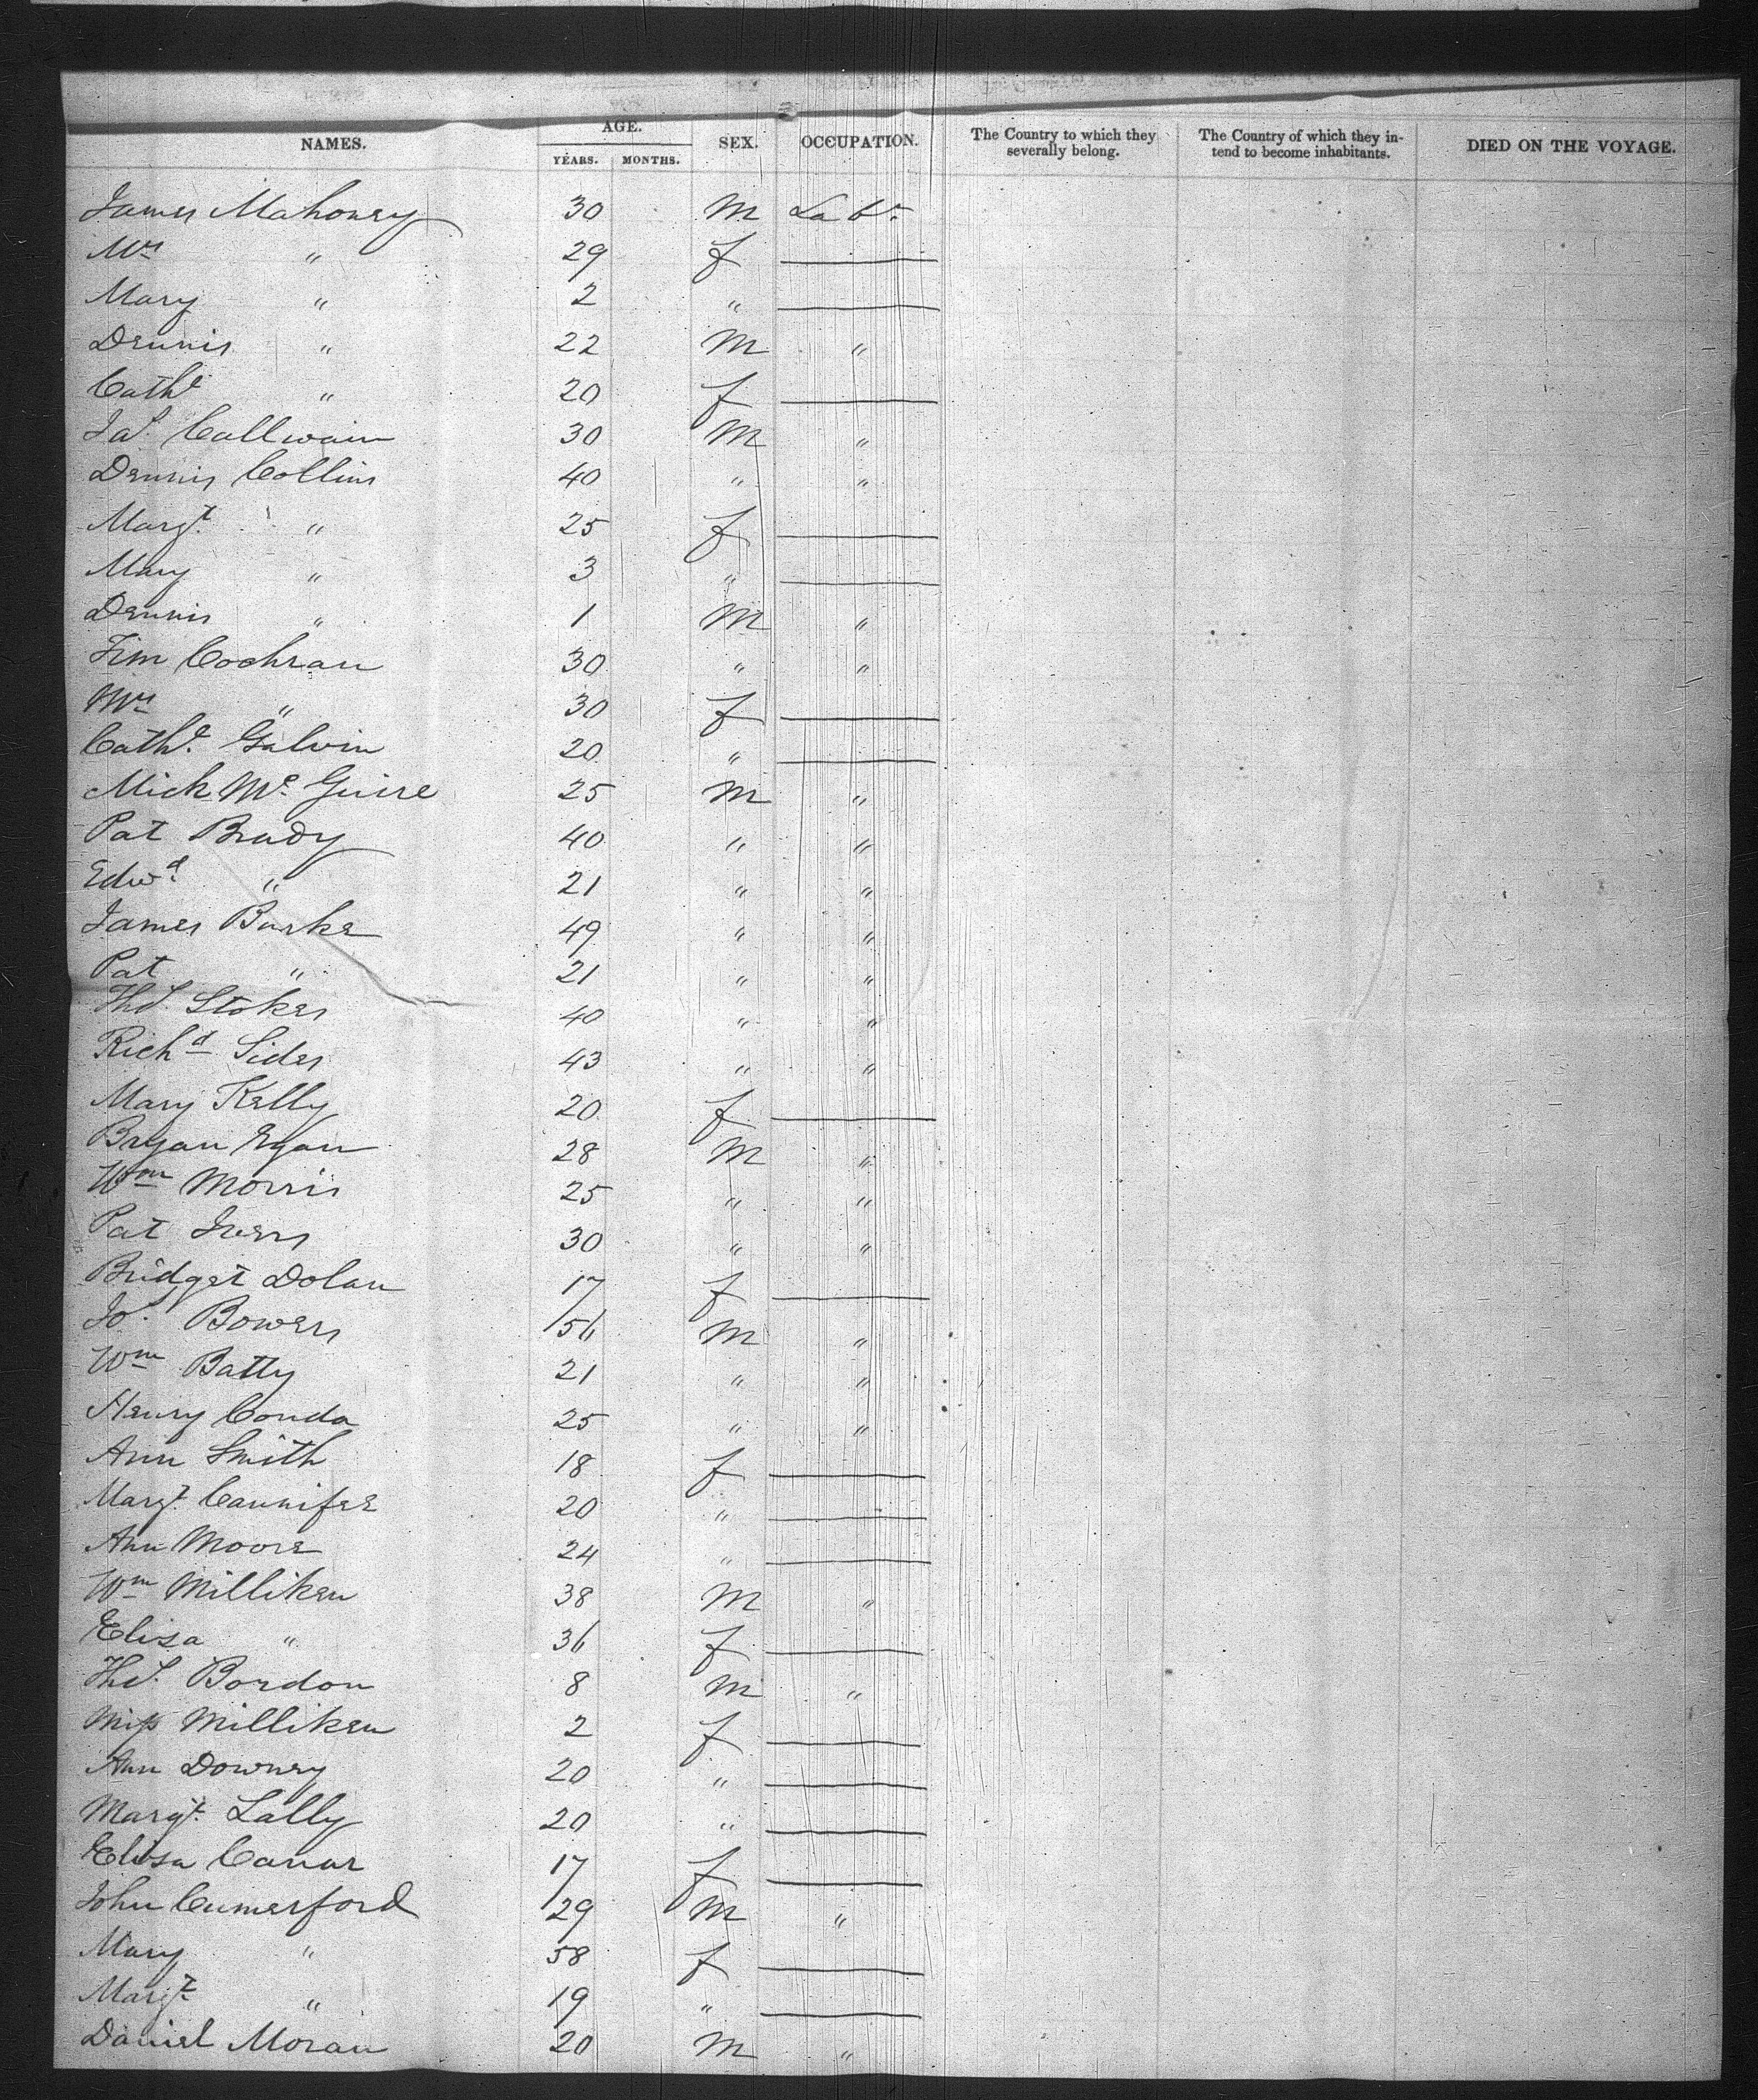 NAMES. AGE. YEARS. MONTHS. SEX. OCCUPATION. The Country to which they severally belong. The Country of which they intend to become inhabitants. DIED ON THE VOYAGE.
James Mahoney 30 M Labr.
Mrs " 29 f
Mary " 2 "
Dennis " 22 M "
Cathe " 20 f
Jas. Callwain 30 M "
Dennis Collins 40 " "
Margt. " 25 f
Mary " 3 "
Dennis " 1 M "
Tim Cochran 30 " "
Mrs " 30 f
Cathe. Galvin 20 "
Mich Mc. Guire 25 M "
Pat Brady 40 " "
Edwd. " 21 " "
James Burke 49 " "
Pat " 21 " "
Thos. Stokes 40 " "
Richd Sides 43 " "
Mary Kelly 20 f
Bryan Egan 28 M "
Wm Morris 25 " "
Pat Ivers 30 " "
Bridget Dolan 17 f
Jos. Bowers 56 M "
Wm Batty 21 " "
Henry Conda 25 " "
Ann Smith 18 f
Margt. Cannifee 20 "
Ann Moore 24 "
Wm Milliken 38 M "
Eliza " 36 f
Thos. Bordon 8 M "
Miss Milliken 2 f
Ann Downey 20 "
Margt. Lally 20 "
Eliza Canar 17 f
John Cumerford 29 M "
Mary " 58 f
Margt. " 19 "
Daniel Moran 20 M "